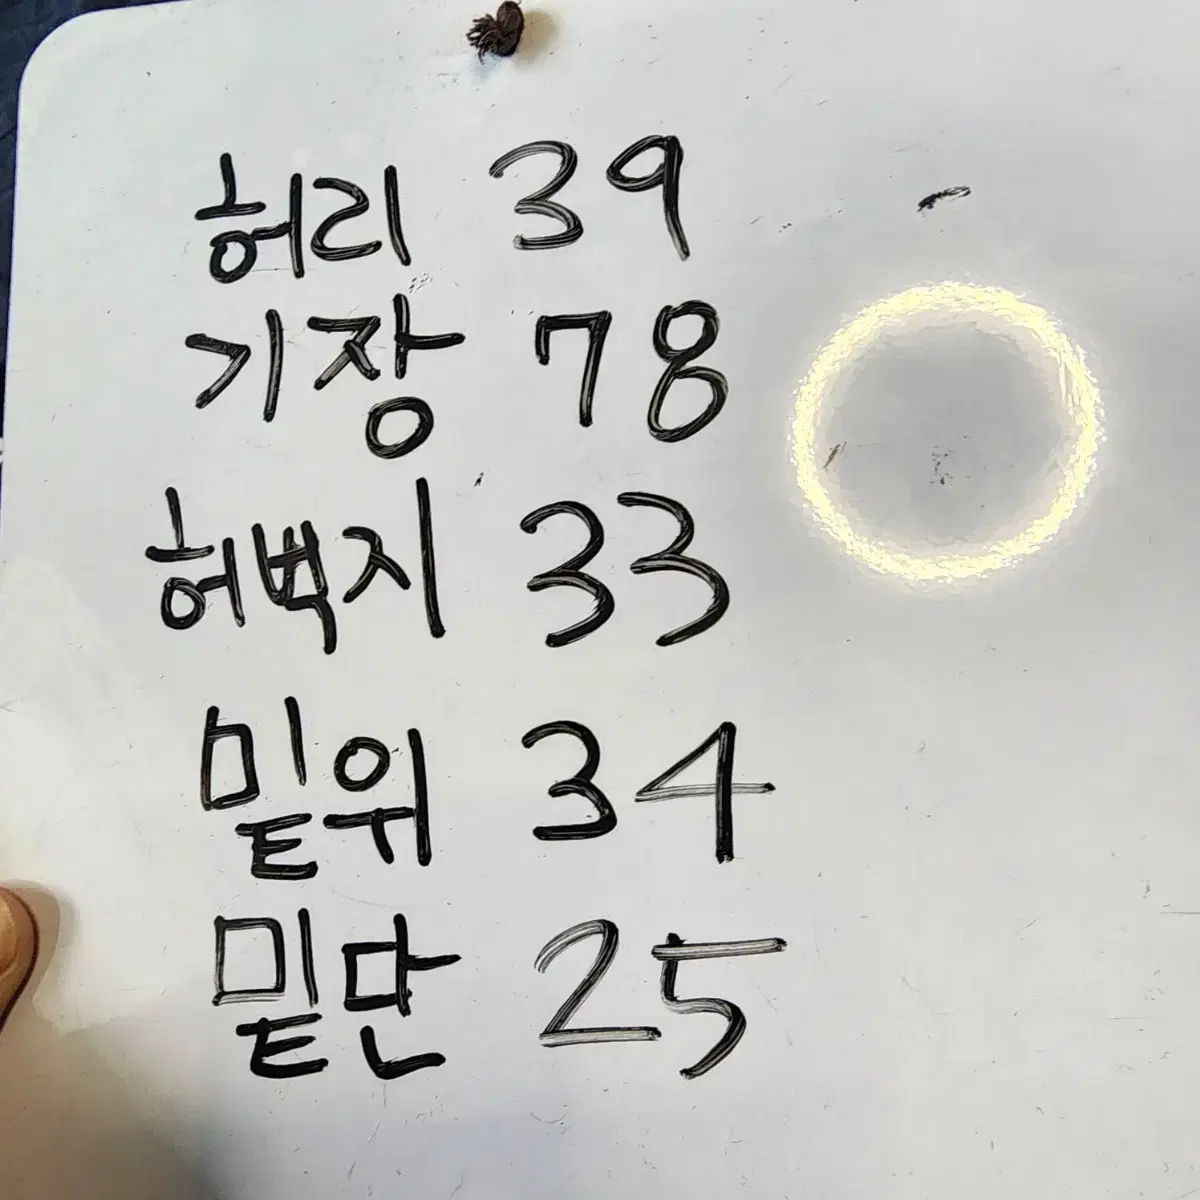 허리 39
기장 78
허벅지 33
밑위 34
밑단 25